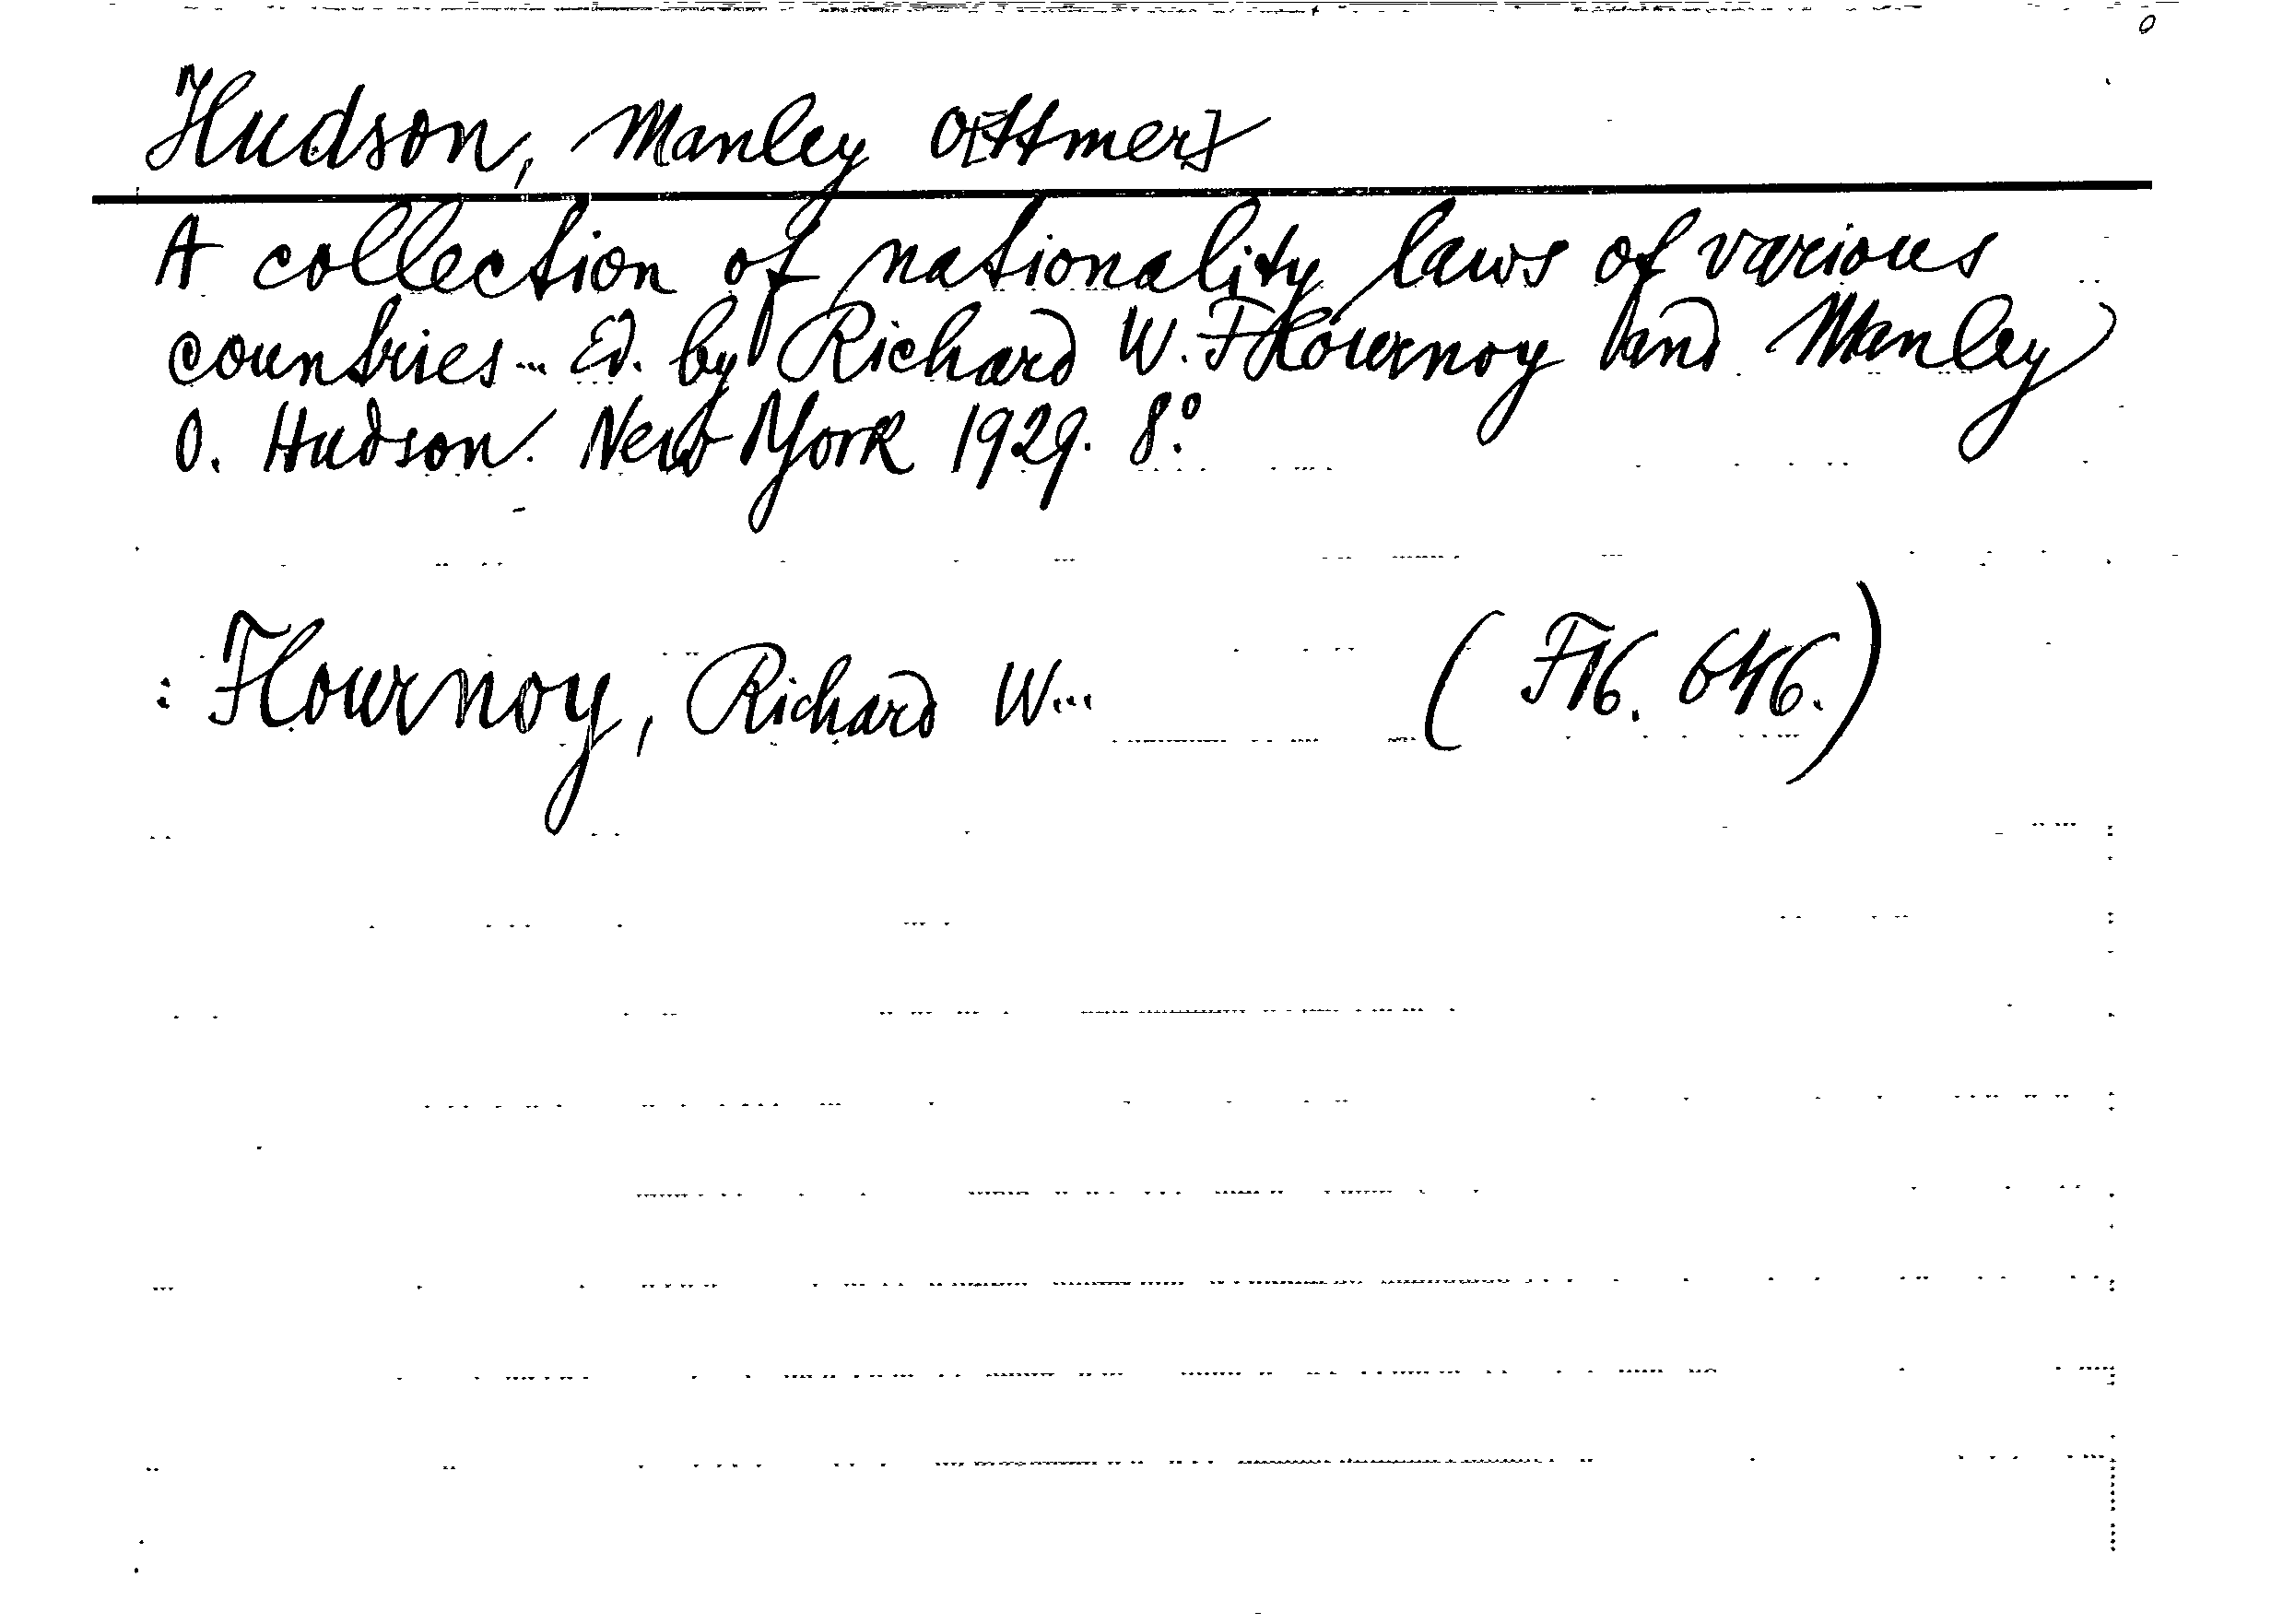 Hudson, Manley O[ttmer]
A collection of nationality laws of various
countries... Ed. by Richard W. Flournoy and Manley
O. Hudson. New York 1929. 8°.
: Flournoy, Richard W... (F16. 646.)